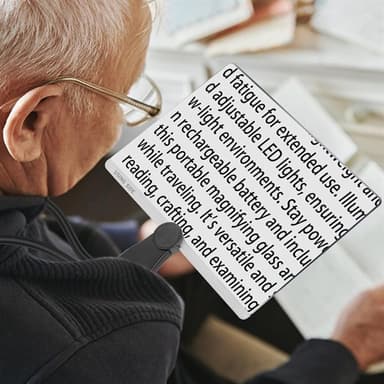 d fatigue for extended use. Illum
d adjustable LED lights, ensuring
w-light environments. Stay pow
n rechargeable battery and inclu
this portable magnifying glass an
while traveling. It's versatile and
reading, crafting, and examining